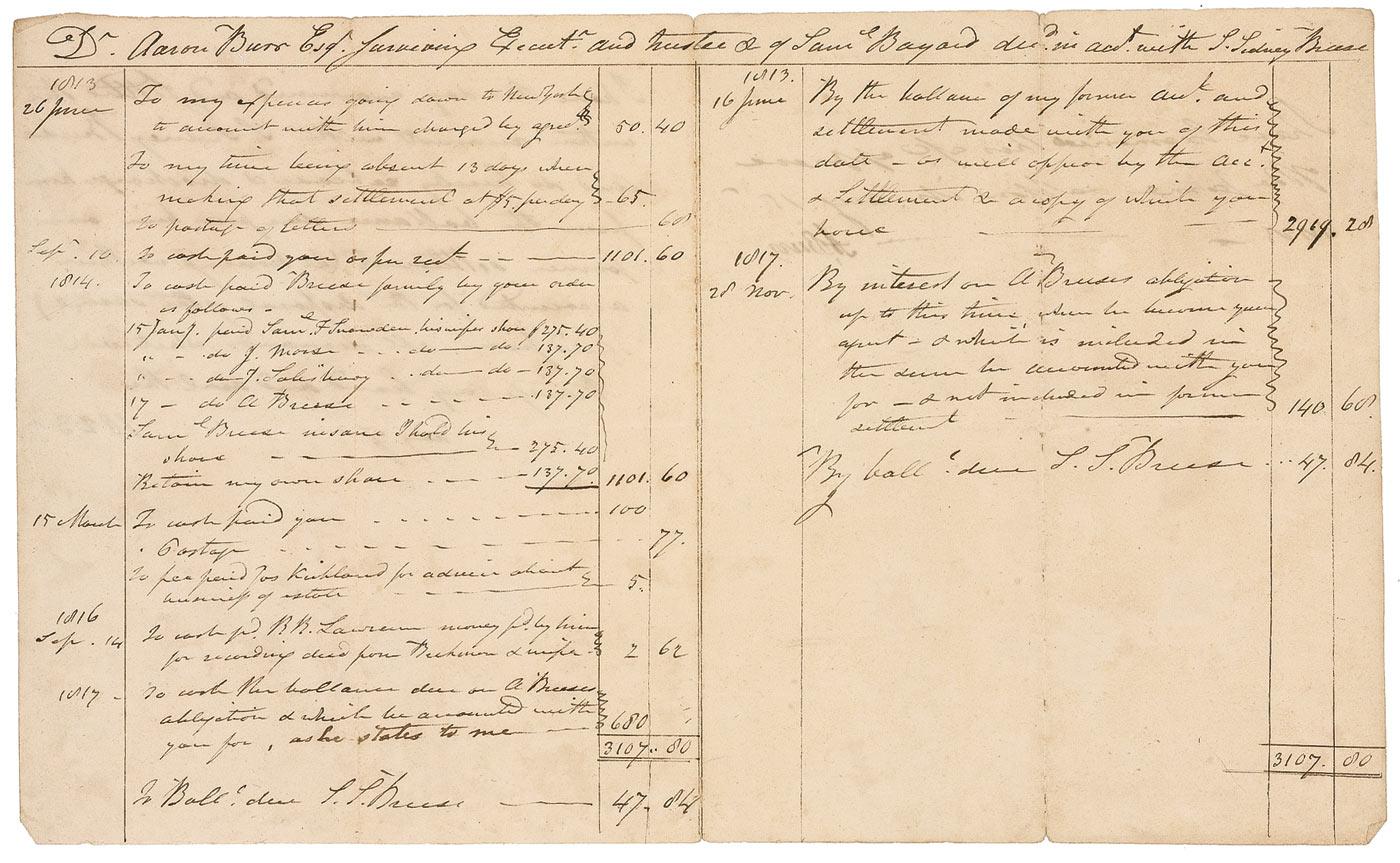 Dr. Aaron Burr Esqr. Surviving Executr. and trustee &c of Saml Bayard decd. in act. with S. Sidney Breese
1813
26 June To my expences going down to New York
to account with him charged by agret. 50. 40
To my time being absent 13 days when
making that settlement at $5 per day 65.
To postage of letters 60
Sepr. 10. To cash paid you as per rect 1101. 60
1814. To cash paid Breese family by your order
as follows -
15 Jany. paid Saml. F Snowden his wifes share $275.40
" - do J. Morse - . . do do. 137.70
" - do J. Salisbury . . do do - 137.70
17 - do A Breese 137.70
Saml Breese insane I hold his
share 275.40
Retain my own share 137.70 1101. 60
15 March To cash paid you 100
. Postage 77.
To fee paid Jos Kirkland for advice about
business of estate 5.
1816
Sep. 14 To cash pd. R. R. Lawrence money pd. by him
for recording deed from Beekman & wife 2 62
1817 - To cash the ballance due on A Breeses
obligation & which he accounted with
you for, as he states to me 680 "
3107. 80
To Balle. due S. S. Breese 47. 84
1813.
16 June By the ballance of my former act. and
settlement made with you of this
date - as will appear by the acct.
& Settlement & a copy of which you
have 2919. 28
1817.
28 Nov. By interest on A Breeses obligation
up to this time when he become your
apent - & which is included in
the sum he accounted with you
for - & not included in former
settlemt 140 68
By balle. due S. S. Breese . . . 47. 84.
3107. 80